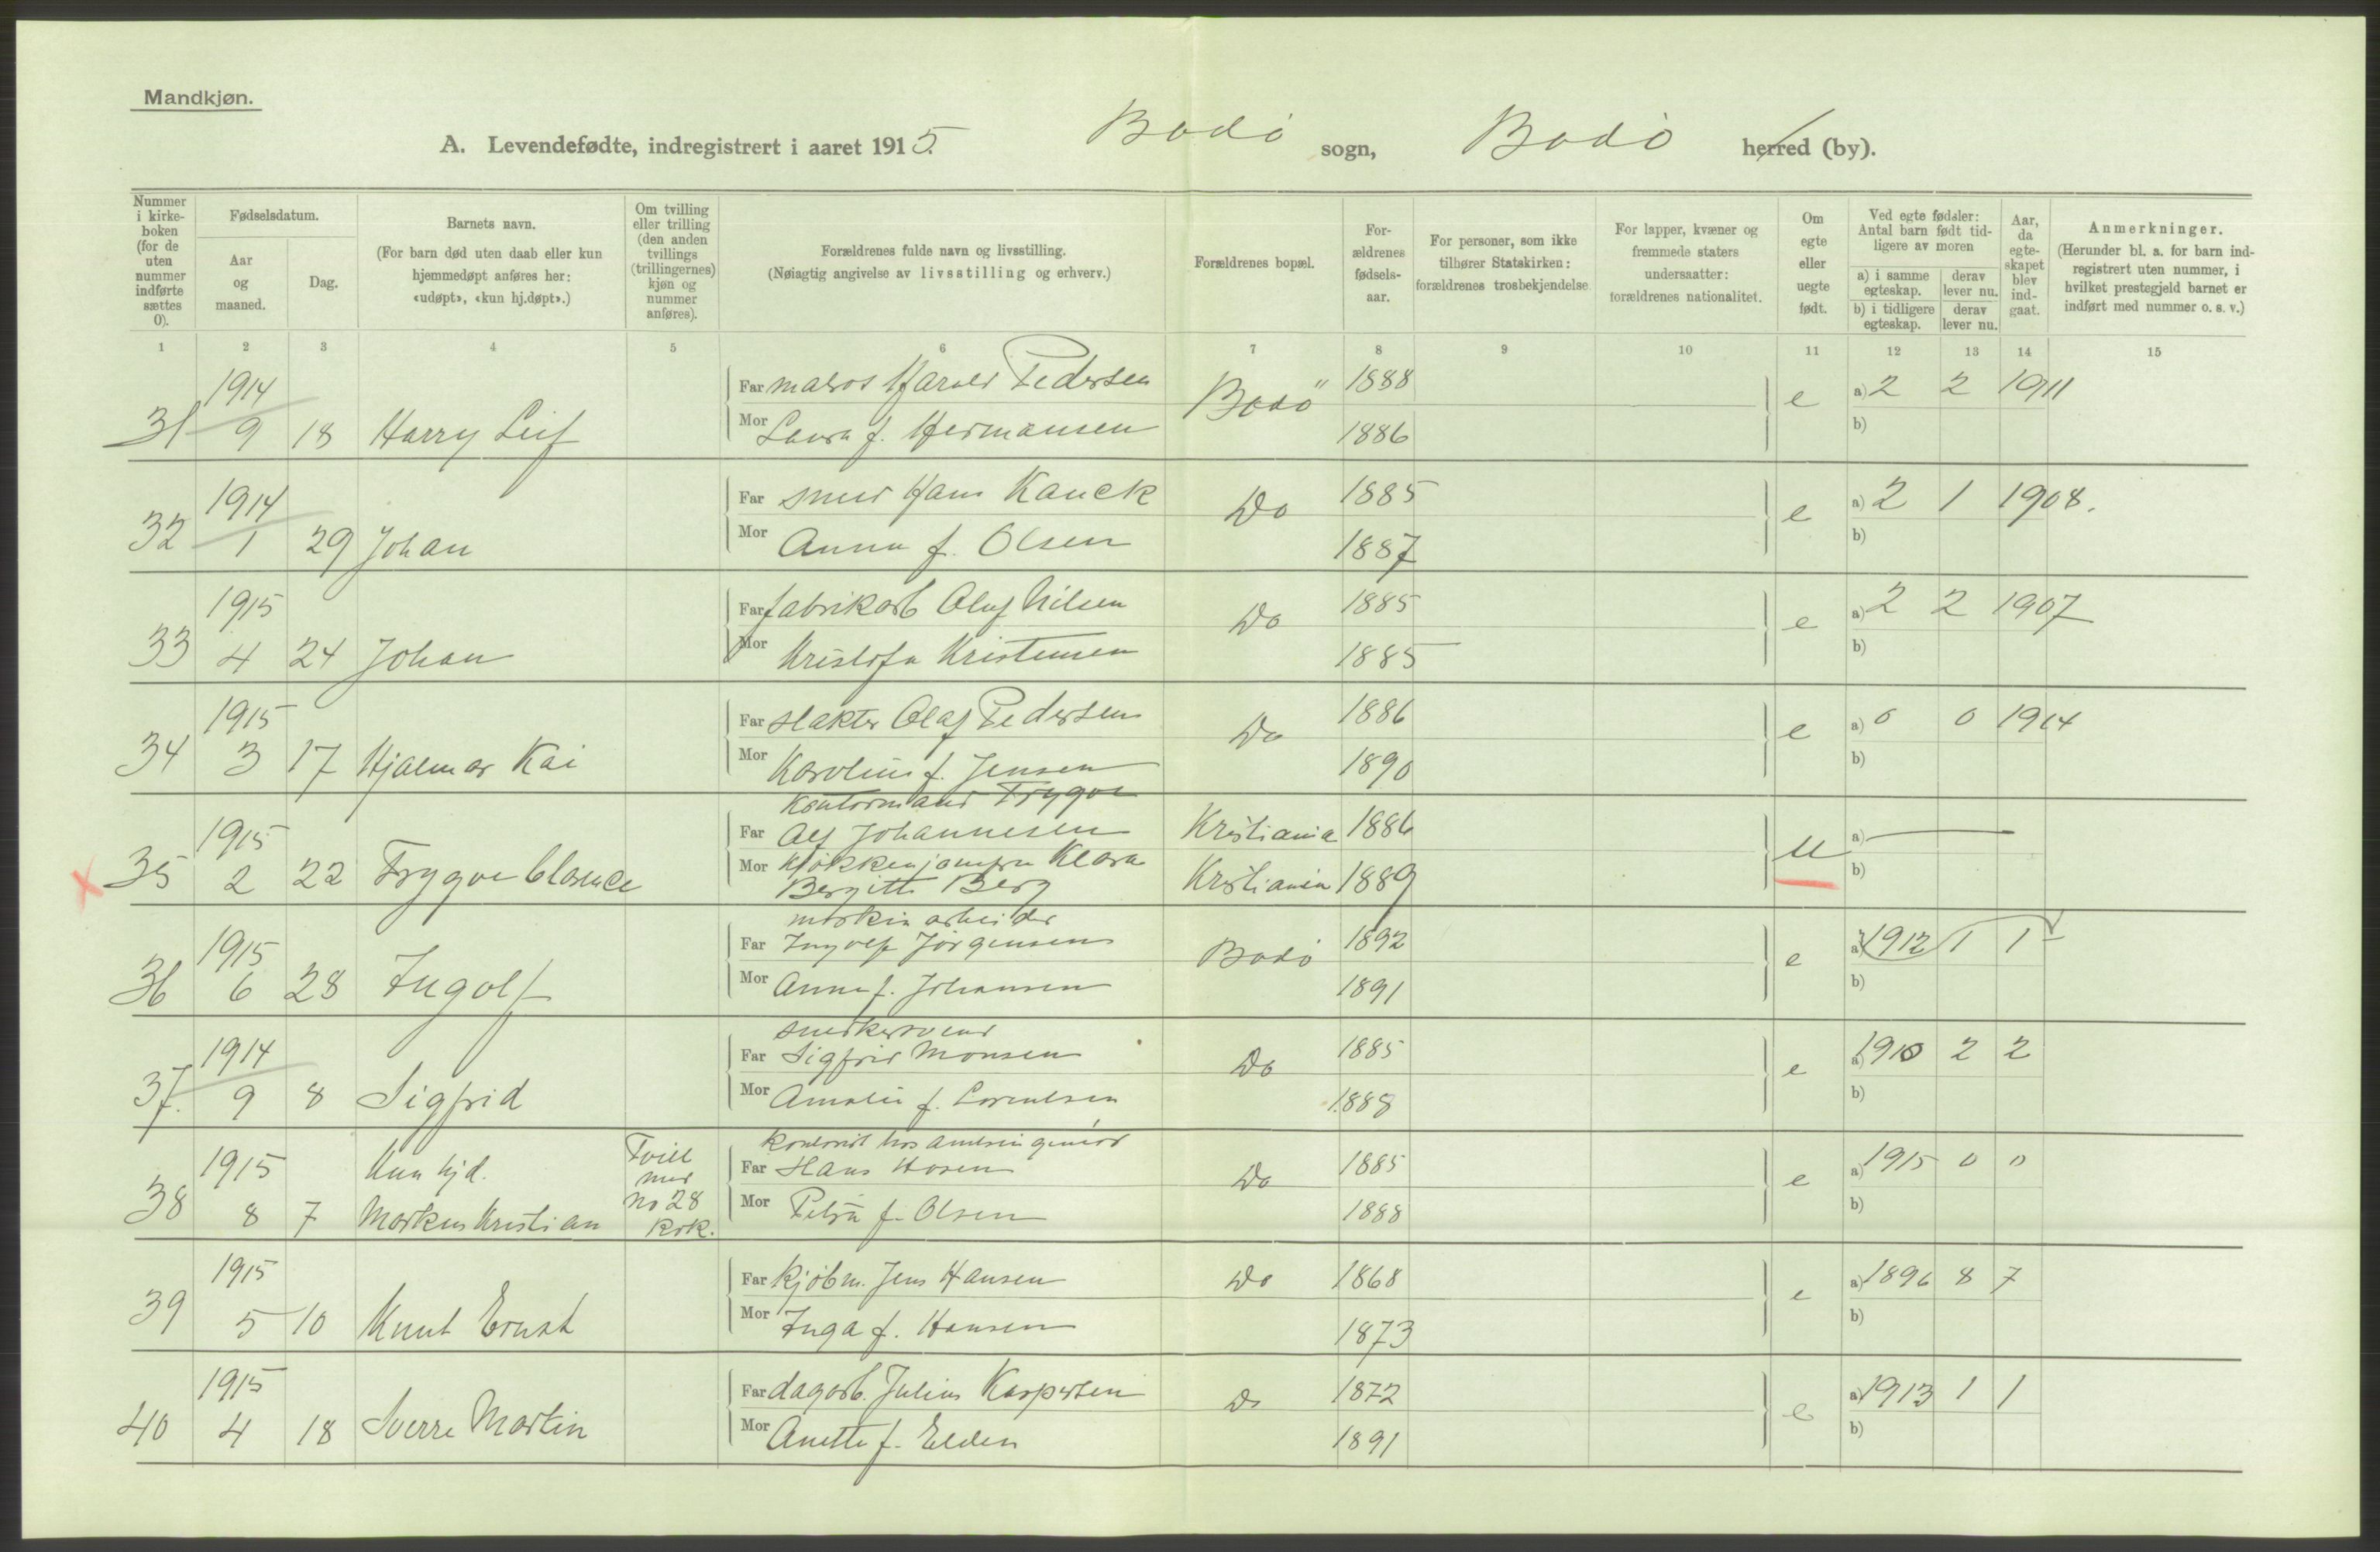 Mandkjøn.
A. Levendefødte, indregistrert i aaret 1915. Bodö sogn, Bodö herred (by).
Nummer i kirkeboken (for de uten nummer indførte sættes 0).
Fødselsdatum.
Aar og maaned.
Dag.
Barnets navn.
(For barn død uten daab eller kun hjemmedøpt anføres her: «udøpt», «kun hj.døpt».)
Om tvilling eller trilling (den anden tvillings (trillingernes) kjøn og nummer anføres).
Forældrenes fulde navn og livsstilling.
(Nøiagtig angivelse av livsstilling og erhverv.)
Forældrenes bopæl.
Forældrenes fødselsaar.
For personer, som ikke tilhører Statskirken: forældrenes trosbekjendelse
For lapper, kvæner og fremmede staters undersaatter: forældrenes nationalitet.
Om egte eller uegte født.
Ved egte fødsler: Antal barn født tidligere av moren
a) i samme egteskap. derav lever nu.
b) i tidligere egteskap. derav lever nu.
Aar, da egteskapet blev indgaat.
Anmerkninger.
(Herunder bl. a. for barn indregistrert uten nummer, i hvilket prestegjeld barnet er indført med nummer o. s. v.)
1 2 3 4 5 6 7 8 9 10 11 12 13 14 15
1914 Far matros Harald Pedersen Bodö 1888 a) 2 2 1911
31 9 18 Harry Leif Mor Laura f. Hermansen 1886 e b)
1914 Far smed Hans Kauck Do 1885 a) 2 1 1908.
32 1 29 Johan Mor Anna f. Olsen 1887 e b)
1915 Far fabrikarb Oluf Nilsen Do 1885 a) 2 2 1907
33 4 24 Johan Mor Kristofa Kristensen 1885 e b)
1915 Far slakter Olaf Pedersen Do 1886 a) 0 0 1914
34 3 17 Hjalmar Kai Mor Karoline f. Jensen 1890 e b)
Kontormand Trygve
1915 Far Alf Johannesen Kristiania 1886 a)
x 35 2 22 Trygve Clarence Mor Kjøkkenjomfru Klara u b)
Bergitte Berg Kristiania 1889
maskinarbeider
1915 Far Ingolf Jörgensen Bodö 1892 a) 1912 1 1
36 6 28 Ingolf Mor Anna f. Johansen 1891 e b)
snedkersvend
1914 Far Sigfrid Monsen Do 1885 a) 1910 2 2
37. 9 8 Sigfrid Mor Amalie f. Lorentsen 1888 e b)
Kontorist hos amtsingeniör
1915 Kun hjd. Tvill med Far Hans Hosen Do 1885 a) 1915 0 0
38 8 7 Markus Kristian No 28 Kvk. Mor Petra f. Olsen 1888 e b)
1915 Far Kjöbm. Jens Hansen Do 1868 a) 1896 8 7
39 5 10 Knut Ernst Mor Inga f. Hansen 1873 e b)
1915 Far dagarb. Julius Kaspersen Do 1872 a) 1913 1 1
40 4 18 Sverre Martin Mor Anette f. Elden 1891 e b)